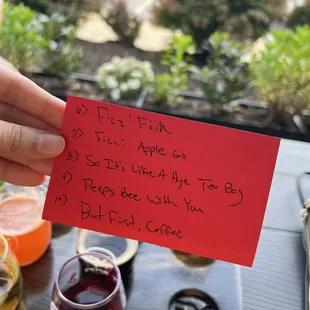 6) Fizz: Fish
7) Fizz: Apple Go
8) So It's Like A Hye Too Bay
9) Peeps Bee With You
10) But First, Coffee